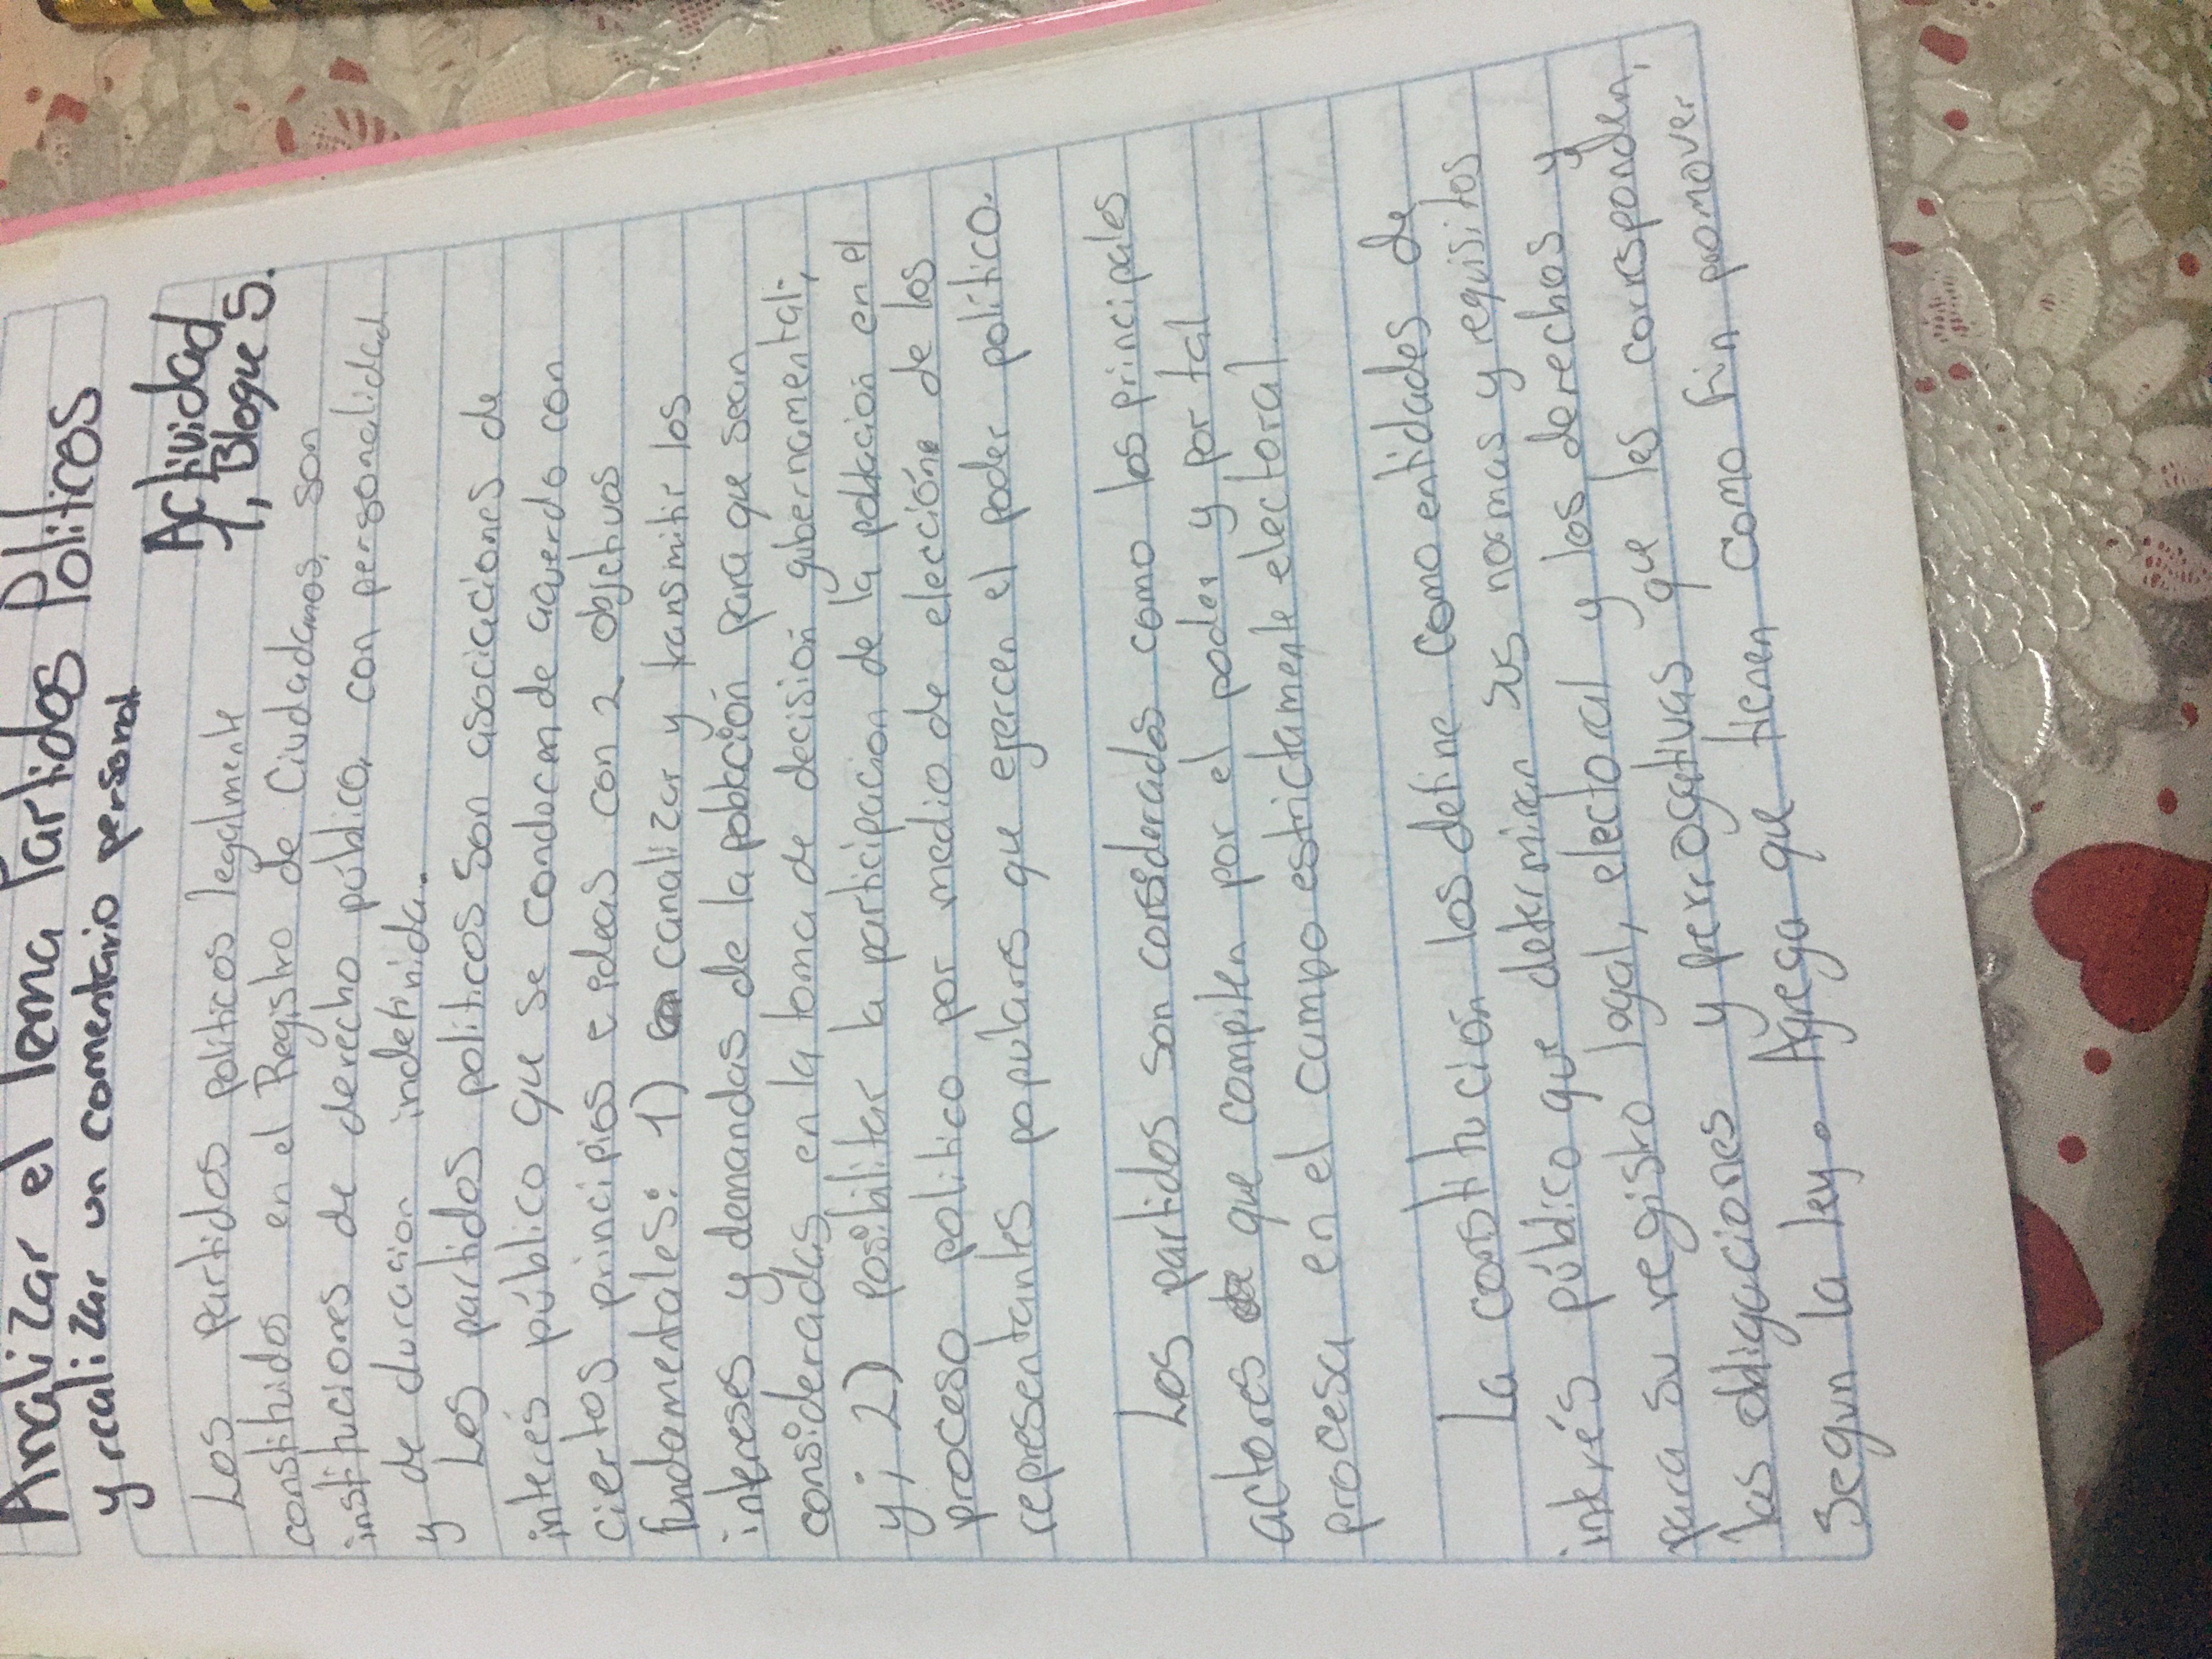 Analizar el tema Partidos Politicos
y realizar un comentario personal
Actividad
1, Bloque 5.
Los partidos politicos legalmente
constituidos en el Registro de Ciudadanos, son
instituciones de derecho público, con personalidad
y de duracion indefinida.
Los partidos politicos son asociaciones de
interés público que se conducen de acuerdo con
ciertos principios e ideas con 2 objetivos
fundamentales: 1) canalizar y transmitir los
intereses y demandas de la población para que sean
consideradas en la toma de decisión gubernamental,
y; 2) posibilitar la participacion de la población en el
proceso politico por medio de elección de los
representantes populares que ejercen el poder político.
Los partidos son considerados como los principales
actores que compiten por el poder y por tal
procesa en el campo estrictamente electoral
La constitución los define como entidades de
interés público que determinan sus normas y requisitos
para su registro legal, electoral y los derechos y
las obligaciones y prerrogativas que les corresponden,
Segun la ley. Agrega que tienen como fin promover